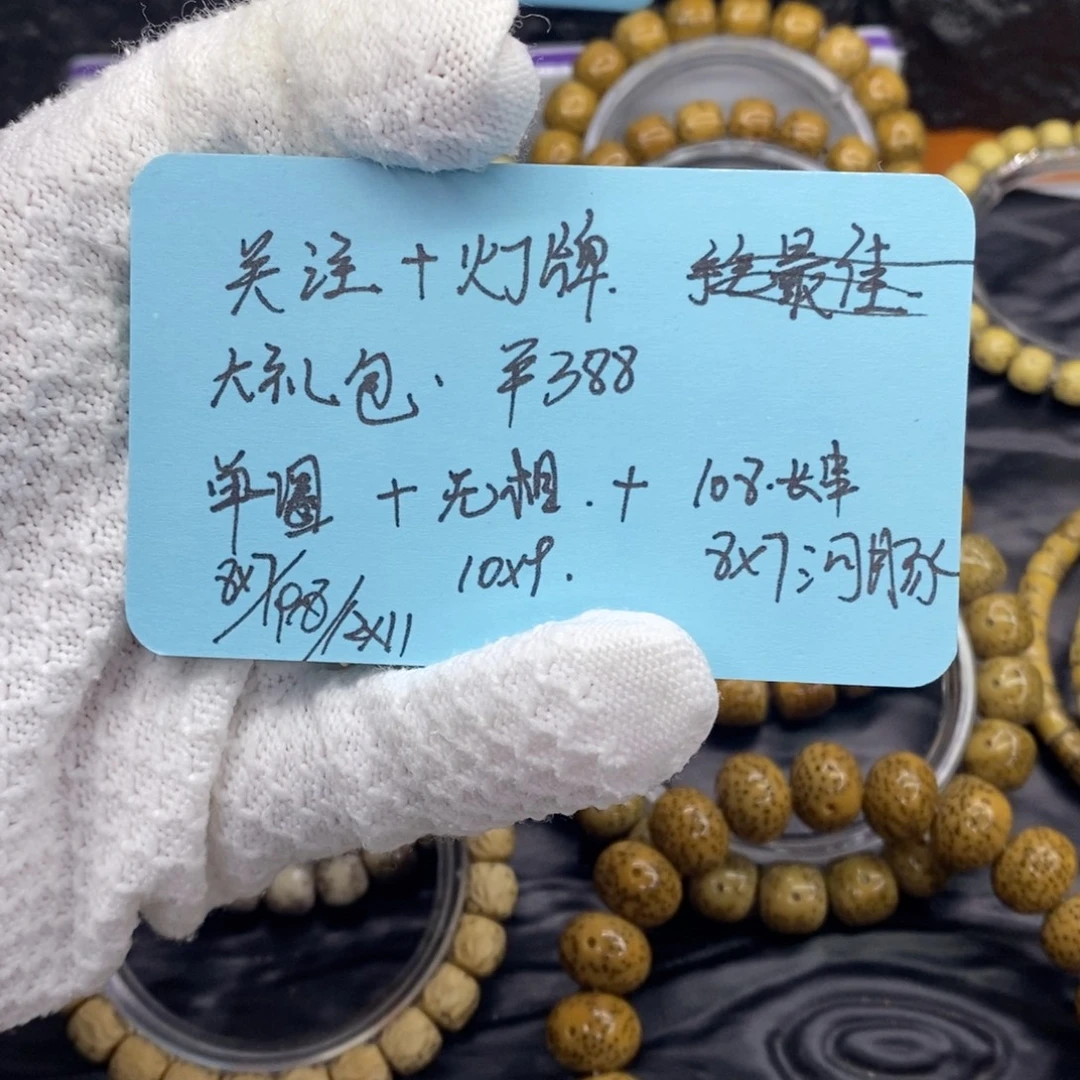 关注+灯牌.
大礼包. ¥388
单圈 + 无相. + 108.长串
8x7/9x8/12x11 10x9. 8x7河豚